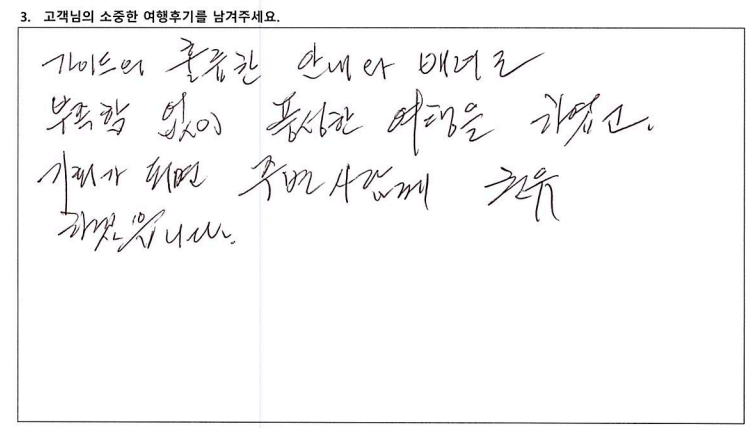 3. 고객님의 소중한 여행후기를 남겨주세요.
가이드의 훌륭한 안내와 배려로
부족함 없이 풍성한 여행을 하였고.
기회가 되면 주변사람께 권유
하겠습니다.